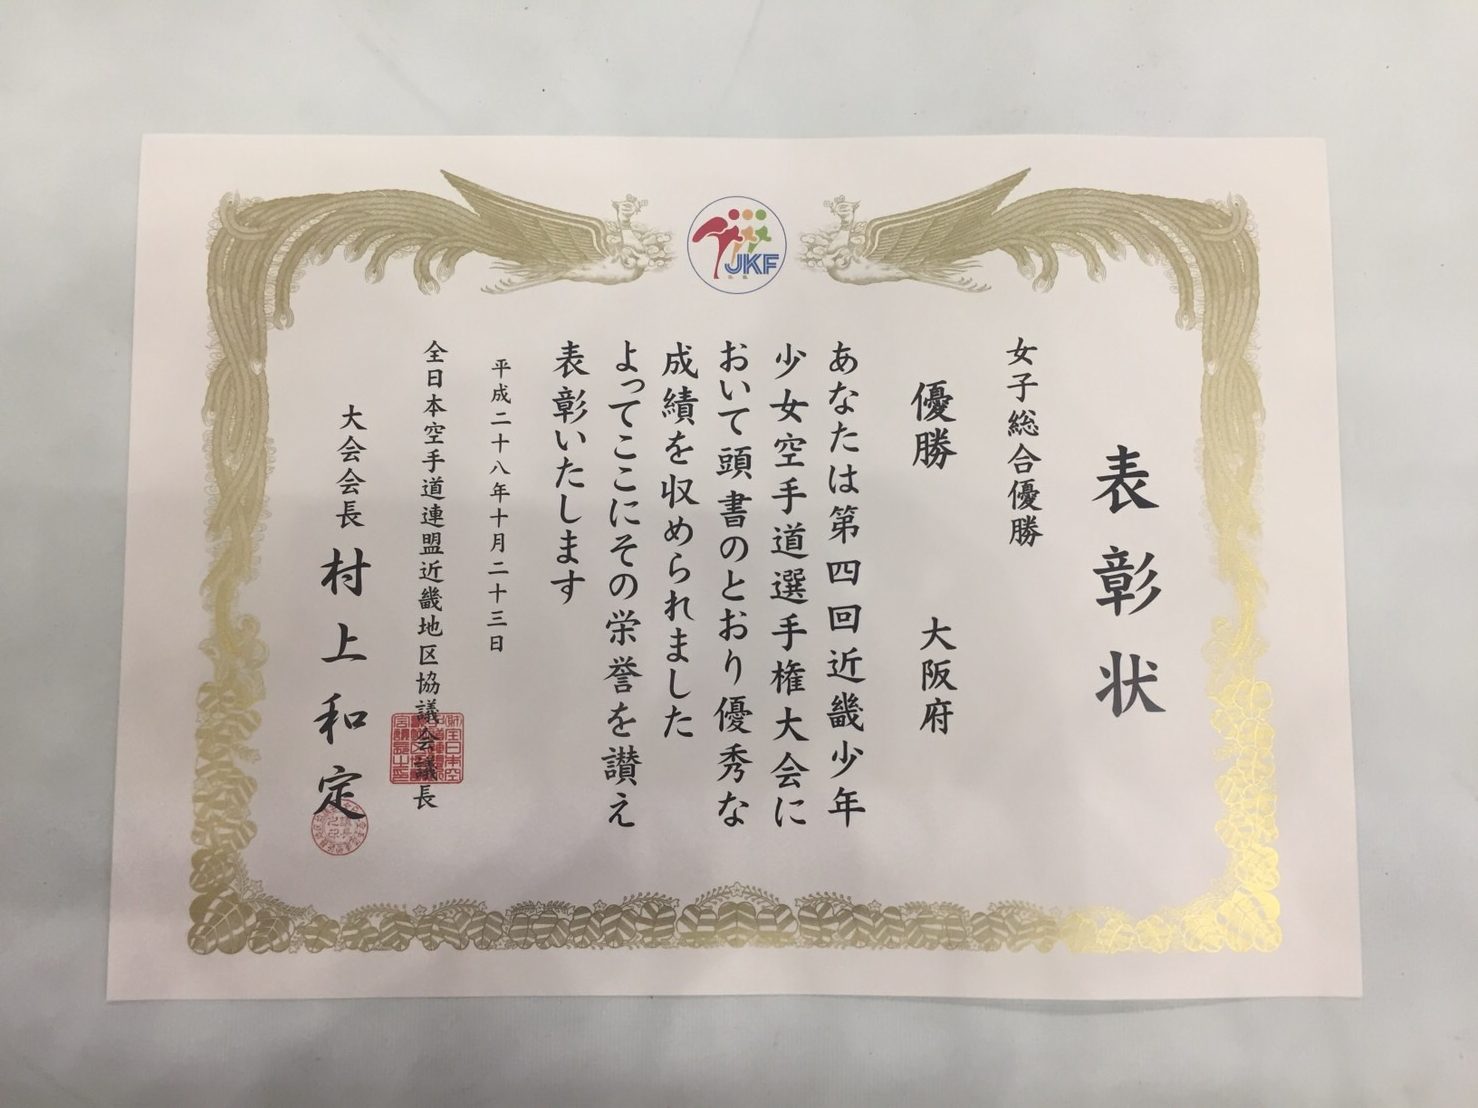 JKF
表彰状
女子総合優勝
優勝 大阪府
あなたは第四回近畿少年
少女空手道選手権大会に
おいて頭書のとおり優秀な
成績を収められました
よってここにその栄誉を讃え
表彰いたします
平成二十八年十月二十三日
全日本空手道連盟近畿地区協議会議長
大会会長 村上和定